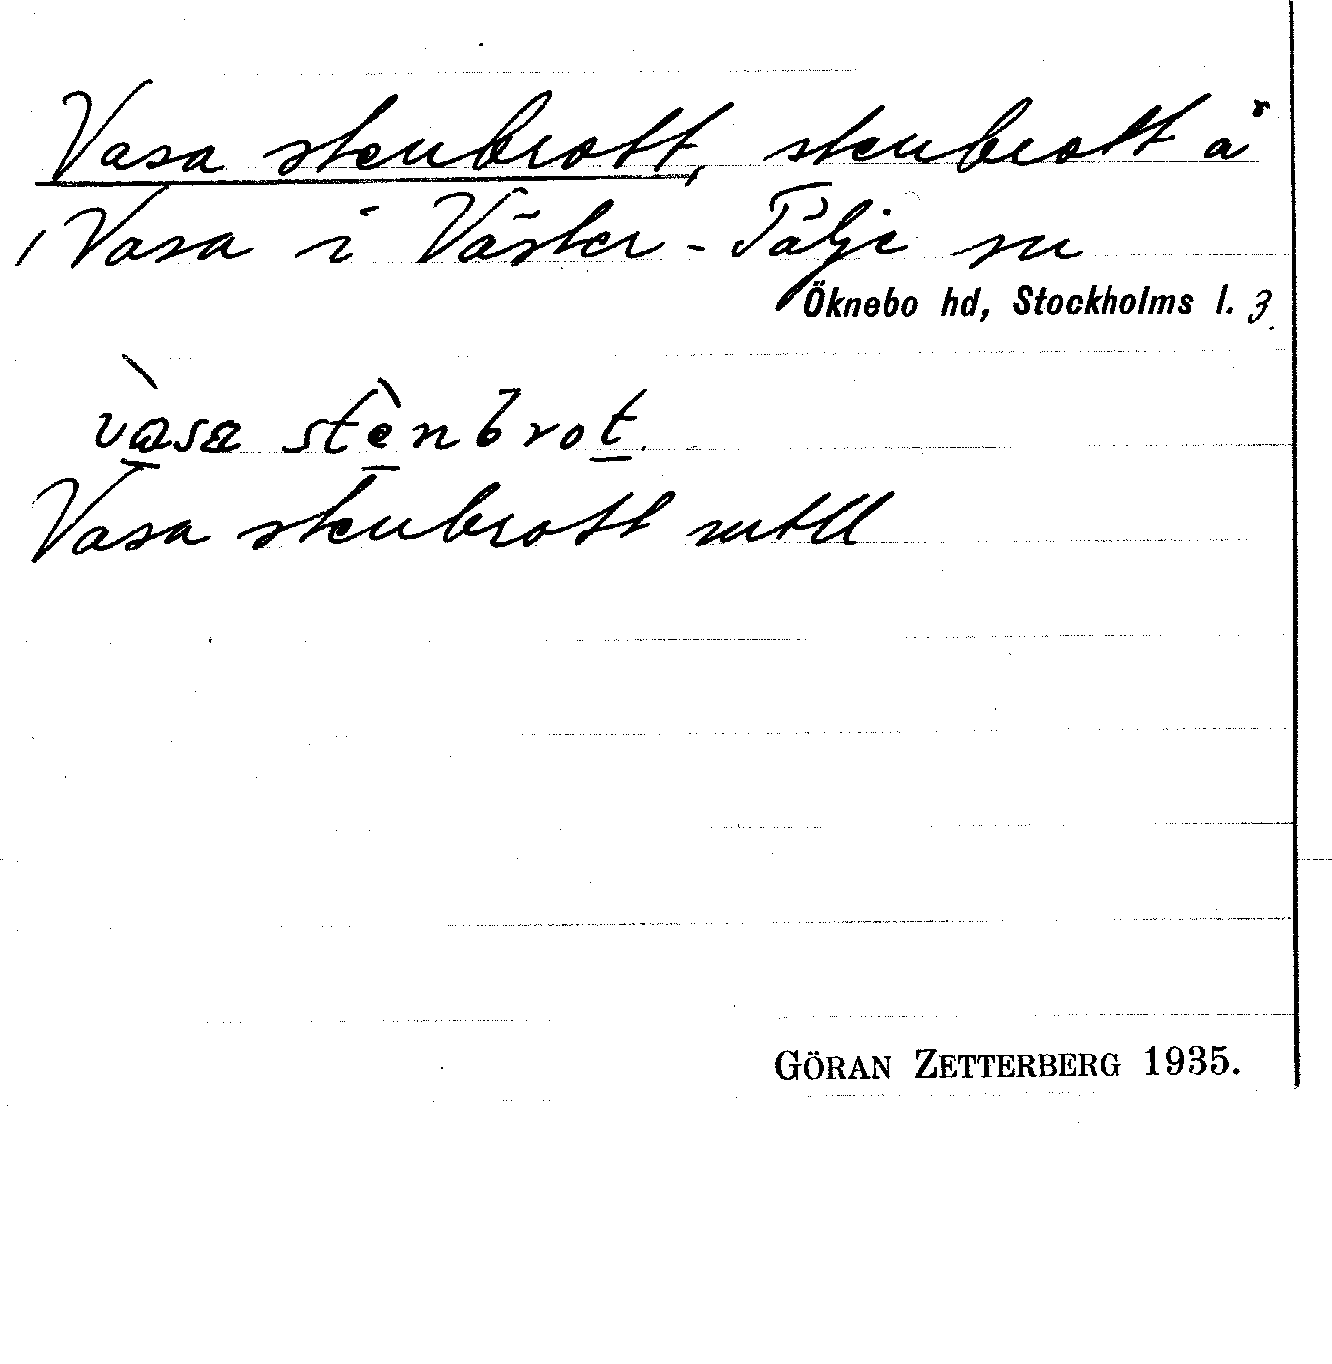 Vasa stenbrott, stenbrott å
/ Vasa i Väster-Tälje sn
Öknebo hd, Stockholms l. 3
vàsa stènbrot
Vasa stenbrott mtll
GÖRAN ZETTERBERG 1935.